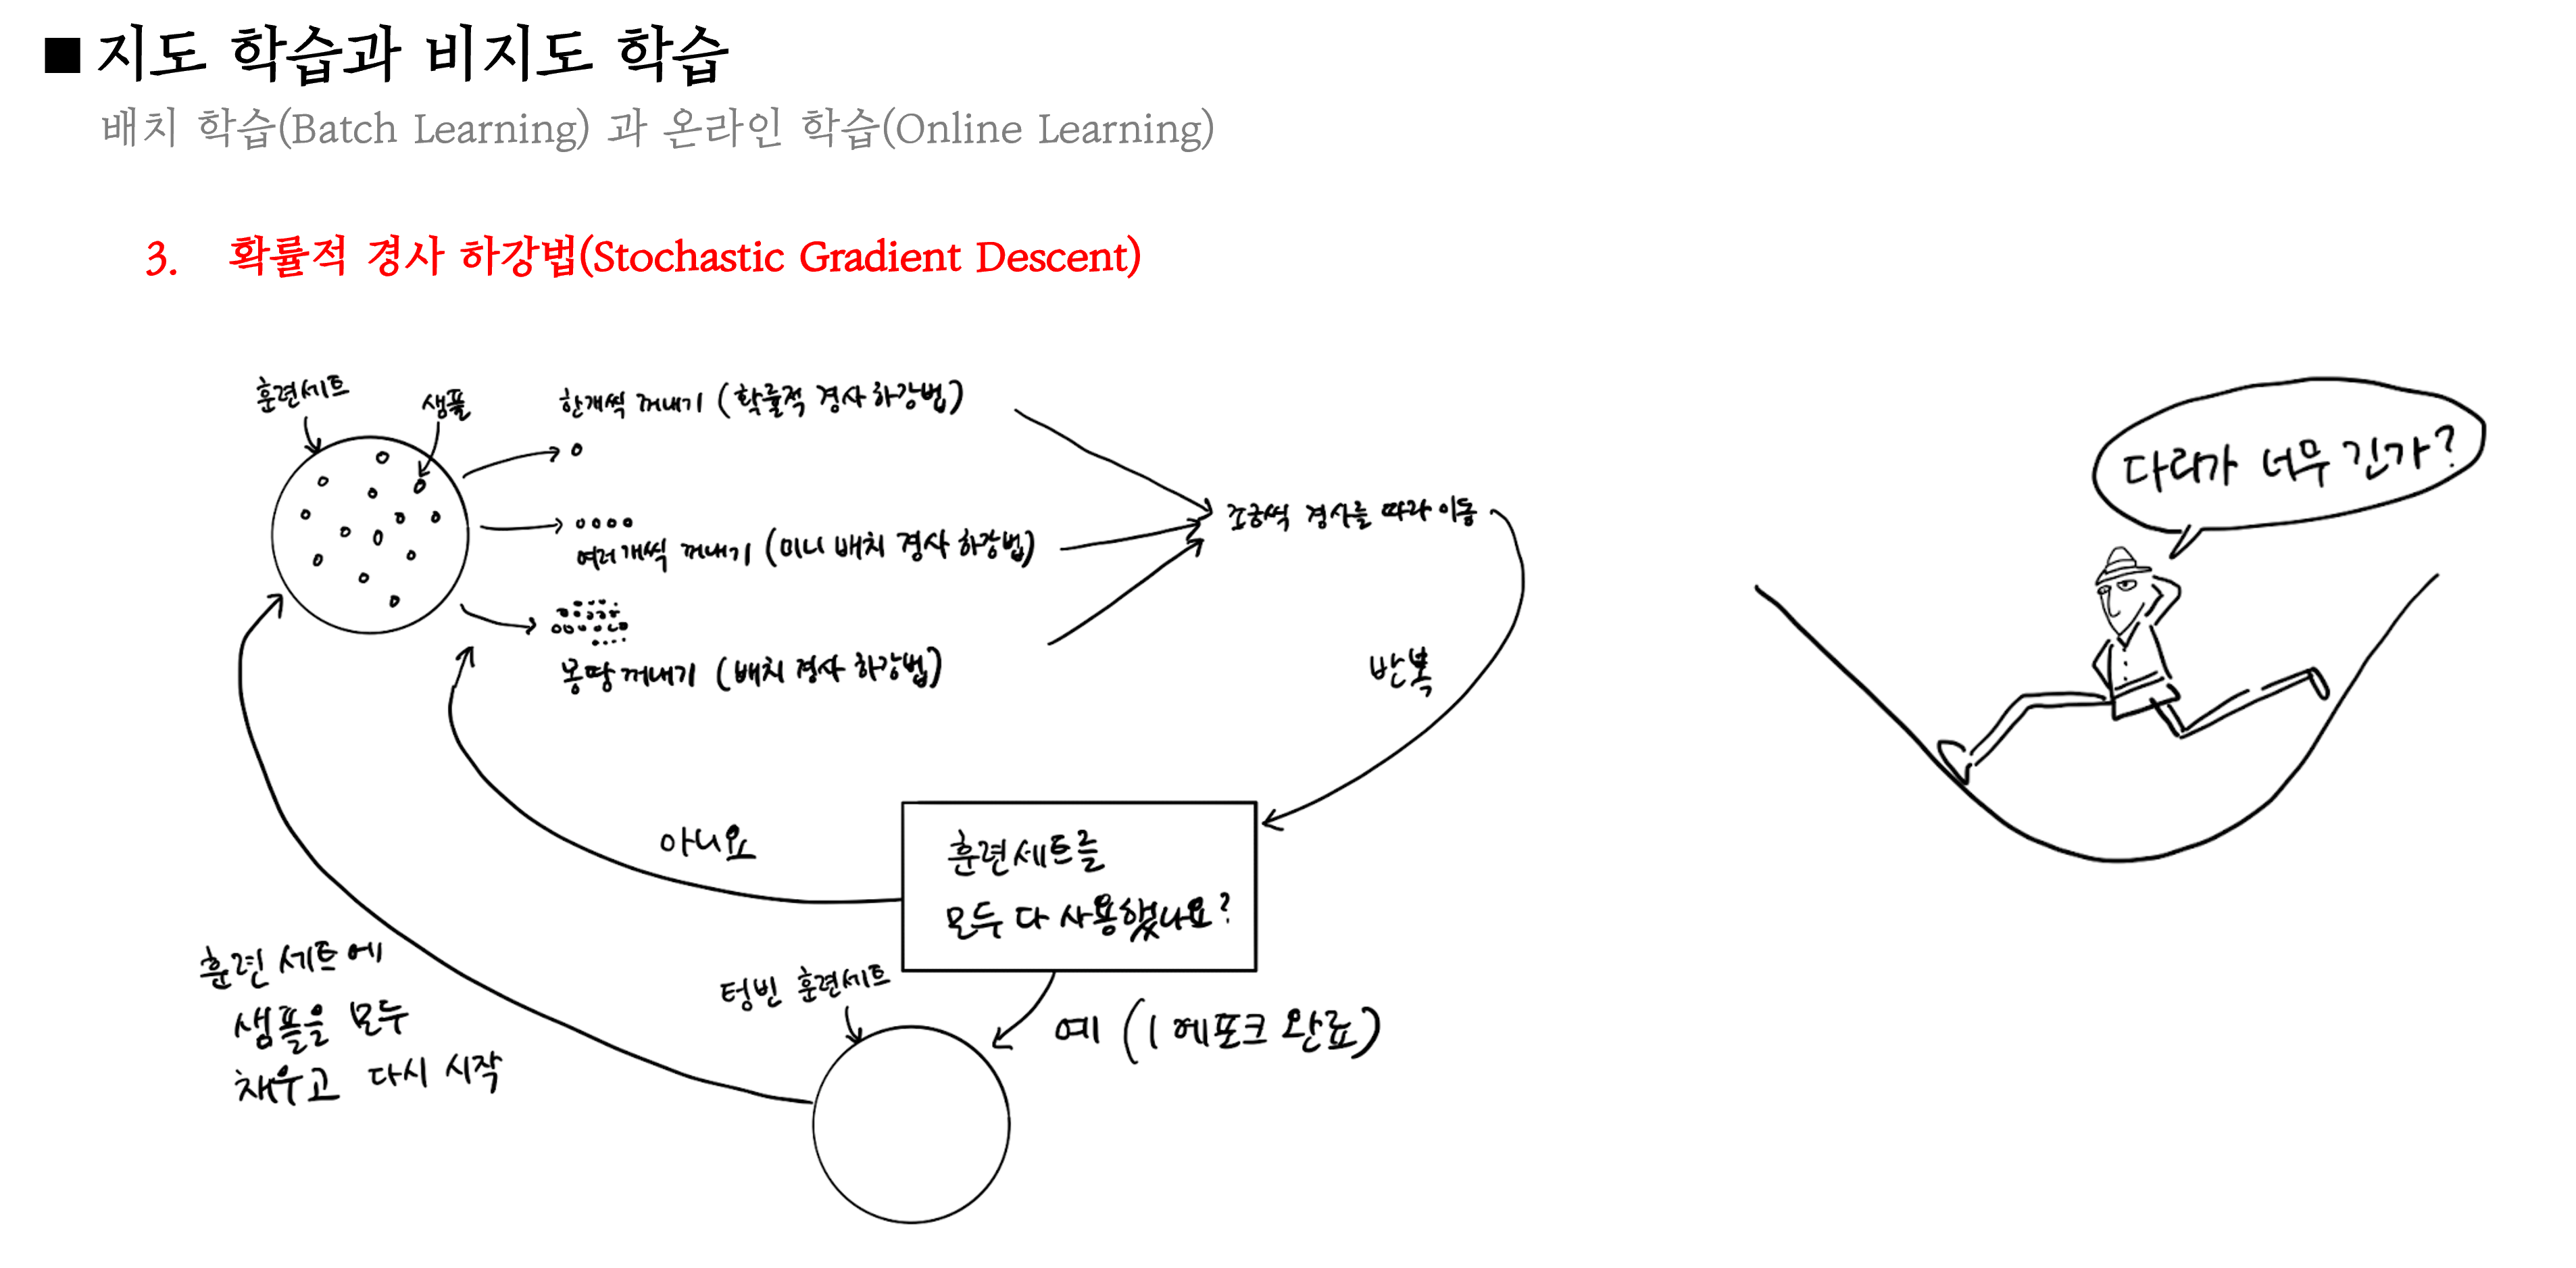 ■ 지도 학습과 비지도 학습
배치 학습(Batch Learning) 과 온라인 학습(Online Learning)
3. 확률적 경사 하강법(Stochastic Gradient Descent)
훈련세트
샘플
한개씩 꺼내기 (확률적 경사 하강법)
여러개씩 꺼내기 (미니 배치 경사 하강법)
몽땅 꺼내기 (배치 경사 하강법)
조금씩 경사를 따라 이동
반복
훈련세트를
모두 다 사용했나요?
아니요
예 (1 에포크 완료)
텅빈 훈련세트
훈련 세트에
샘플을 모두
채우고 다시 시작
다리가 너무 긴가?